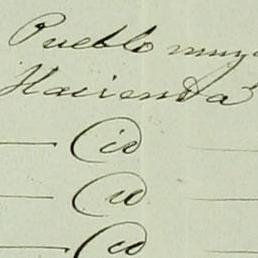 Pueblo
Hacienda
— id —
— id —
— id —